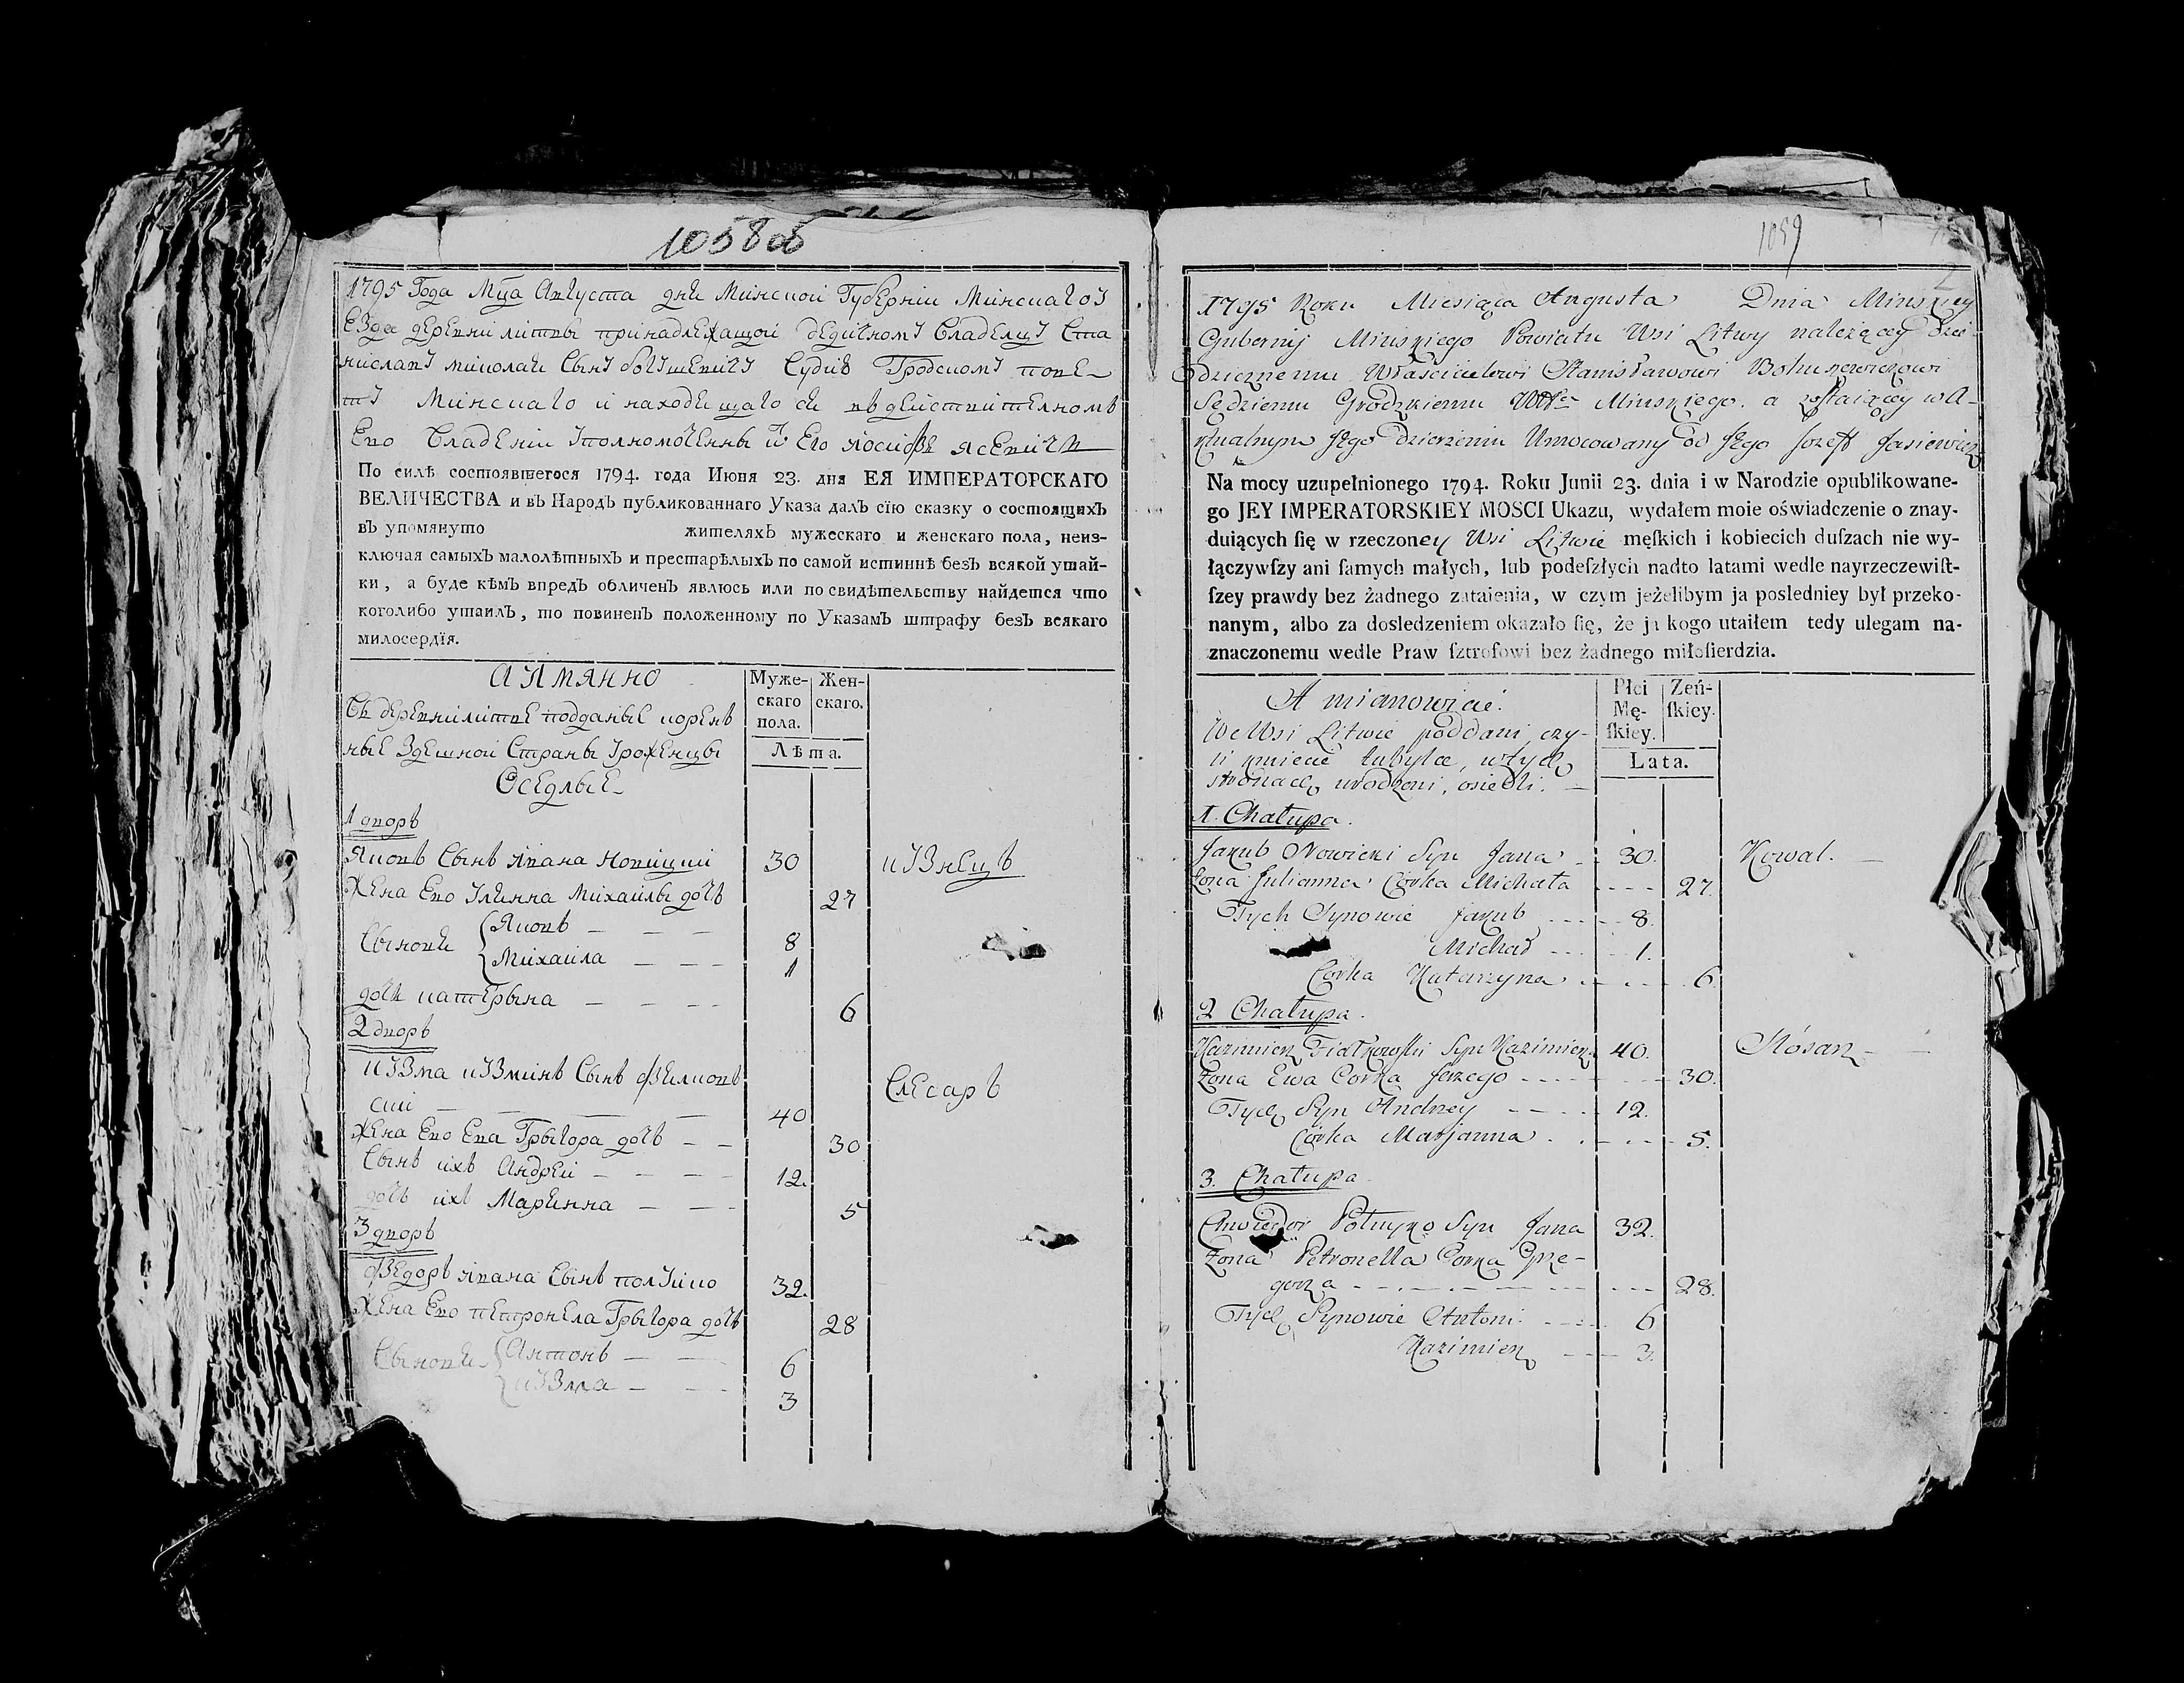 1058 об
1795 Года Мца Августа дня Минской Губерніи Минскаго У
Езда деревни литвы принадлежащой дедичному Владелцу Ста
ниславу миколая Сыну богушевичу Судие Гродскому пове
ту Минскаго и находящаго ся въ действителномъ
Ево Владении Уполномоченны й Его йосифъ ясевичъ
По силѣ состоявшегося 1794. года Июня 23. дня ЕЯ ИМПЕРАТОРСКАГО
ВЕЛИЧЕСТВА и въ Народъ публикованнаго Указа далъ сїю сказку о состоящихъ
въ упомянуто жителяхъ мужескаго и женскаго пола, неиз-
ключая самыхъ малолѣтныхъ и престарѣлыхъ по самой истиннѣ безъ всякой утай-
ки, а буде кѣмъ впредъ обличенъ явлюсь или по свидѣтельству найдется что
коголибо утаилъ, то повиненъ положенному по Указамъ штрафу безъ всякаго
милосердїя.
А Имянно
Въ деревни литве подданые корень
ные Здешной Страны Урожецы
Оседлые
Муже-
скаго
пола.
Жен-
скаго.
Лѣта.
1 дворъ
Яковъ Сынъ Ивана Новицки 30 кУЗнецъ
Жена Ево Улянна Михаилы дочь 27
Сыновя Яковъ 8
Михаила 1
дочь катерына 6
2 дворъ
кУЗма кУЗминъ Сынъ фялков
ски 40 Слесаръ
Жена Ево Ева Грыгора дочь 30
Сынъ ихъ Андреи 12.
дочь ихъ Марянна 5
3 дворъ
фЕдоръ Ивана Сынъ полУйко 32.
Жена Ево петронела Грыгора дочь 28
Сыновя Антонъ 6
кУЗма 3
1059
2
1795 Roku Miesiąca Augusta Dnia Minskiey
Gubernij Minskiego Powiatu Wsi Litwy należącey Dzie-
dzicznemu Włascicielowi Stanisławowi Bohuszewiczowi
Sędziemu Grodzkiemu Wttu Minskiego. a zostaiącey w A-
ktualnym Jego Dzierżeniu Umocowany od Jego Jozeff Jasiewicz
Na mocy uzupełnionego 1794. Roku Junii 23. dnia i w Narodzie opublikowane-
go JEY IMPERATORSKIEY MOSCI Ukazu, wydałem moie oświadczenie o znay-
duiących ſię w rzeczoney Wsi Litwie męſkich i kobiecich duſzach nie wy-
łączywſzy ani ſamych małych, lub podeſzłych nadto latami wedle nayrzeczewiſt-
ſzey prawdy bez żadnego zataienia, w czym jeżelibym ja posledniey był przeko-
nanym, albo za dosledzeniem okazało ſię, że ja kogo utaiłem tedy ulegam na-
znaczonemu wedle Praw ſztrofowi bez żadnego miłoſierdzia.
A mianowicie.
We Wsi Litwie poddani czy-
li kmiecie tubylce, w tych
stronach urodzeni, osiedli.
Płci
Mę-
ſkiey.
Zeń-
ſkiey.
Lata.
1. Chałupa.
Jakub Nowicki Syn Jana 30. Kowal.
Żona Julianna Corka Michała 27.
Tych Synowie Jakub 8.
Michał 1.
Corka Katarzyna 6
2 Chałupa.
Kazimierz Fiałkowski Syn Kazimierz 40. Slósarz
Żona Ewa Corka Jerzego 30.
Tych Syn Andrzey 12.
Córka Marjanna 5.
3. Chałupa
Chwiedor Połuyko Syn Jana 32.
Żona Petronella Corka Grze-
gorza 28.
Tych Synowie Antoni 6
Kazimierz 3.